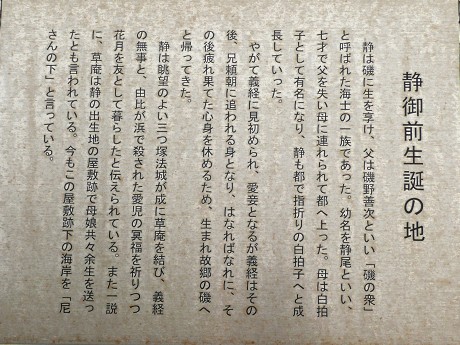 静御前生誕の地
静は磯に生を享け、父は磯野善次といい「磯の衆」
と呼ばれた海士の一族であった。幼名を静尾といい、
七才で父を失い母に連れられて都へ上った。母は白拍
子として有名になり、静も都で指折りの白拍子へと成
長していった。
やがて義経に見初められ、愛妾となるが義経はその
後、兄頼朝に追われる身となり、はなればなれに、そ
の後疲れ果てた心身を休めるため、生まれ故郷の磯へ
と帰ってきた。
静は眺望のよい三つ塚法城が成に草庵を結び、義経
の無事と、由比が浜で殺された愛児の冥福を祈りつつ
花月を友として暮らしたと伝えられている。また一説
に、草庵は静の出生地の屋敷跡で母娘共々余生を送っ
たとも言われている。今もこの屋敷跡下の海岸を「尼
さんの下」と言っている。